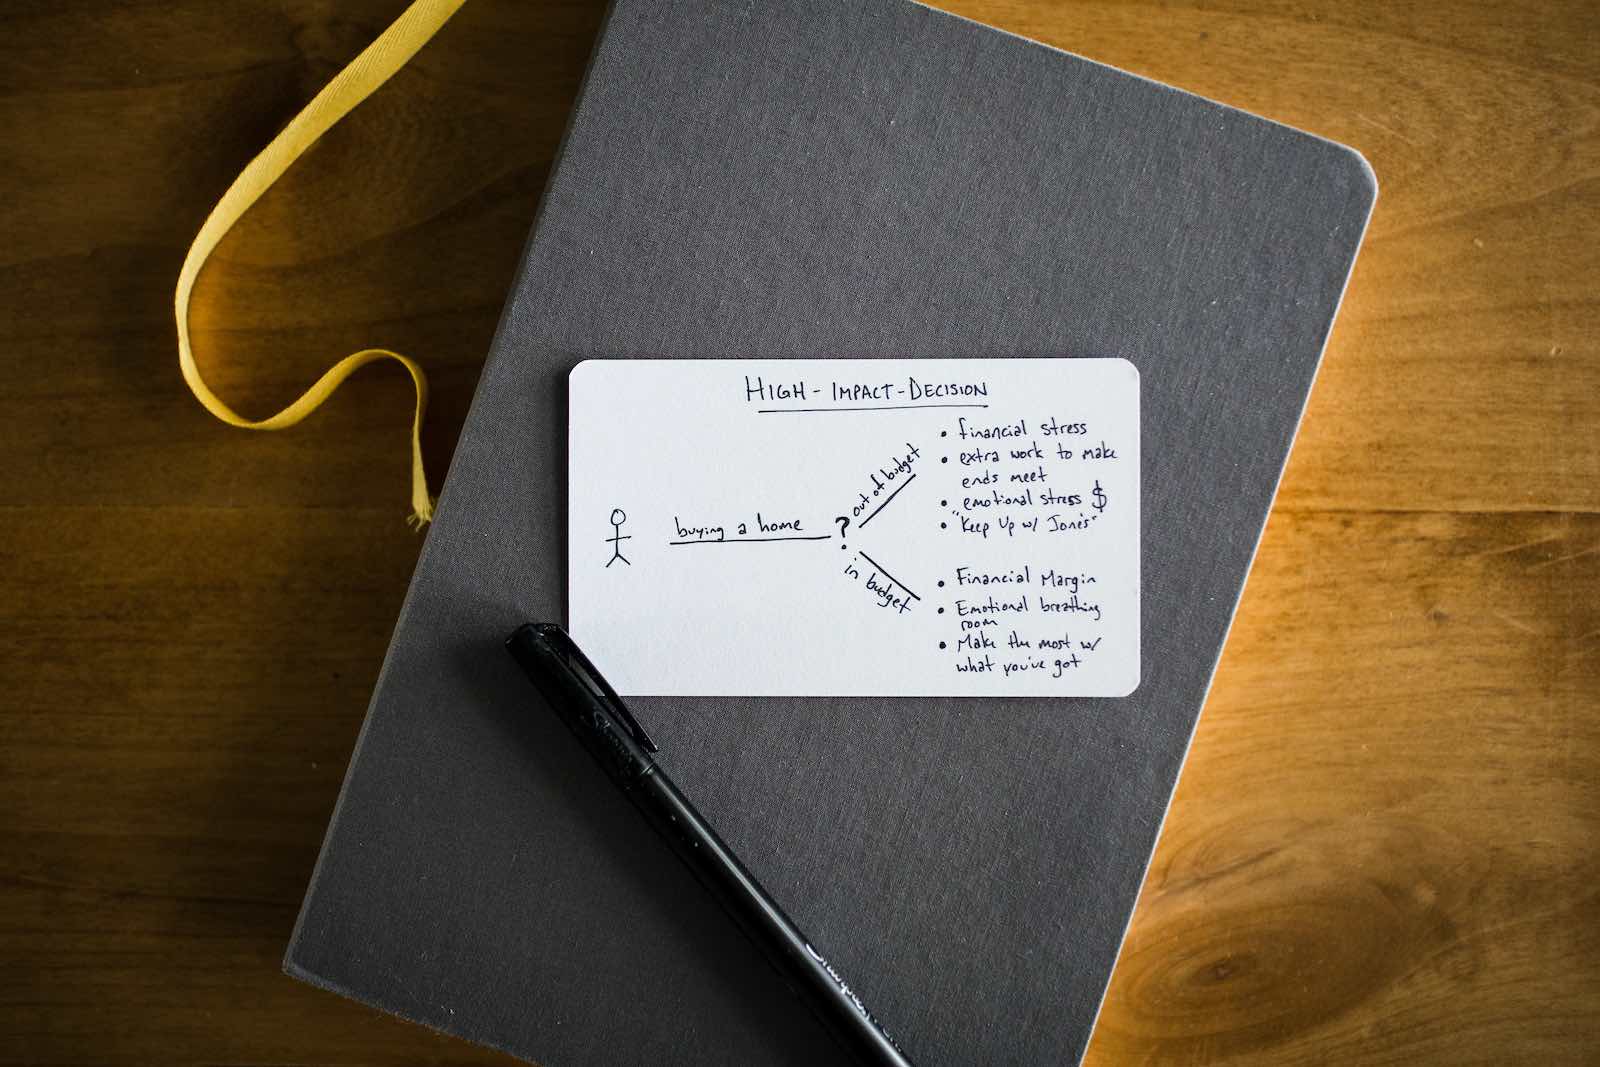 HIGH-IMPACT-DECISION
buying a home
?
out of budget
• financial stress
• extra work to make
ends meet
• emotional stress $
• "Keep Up w/ Jones"
in budget
• Financial Margin
• Emotional breathing
room
• Make the most w/
what you've got
Sharpie